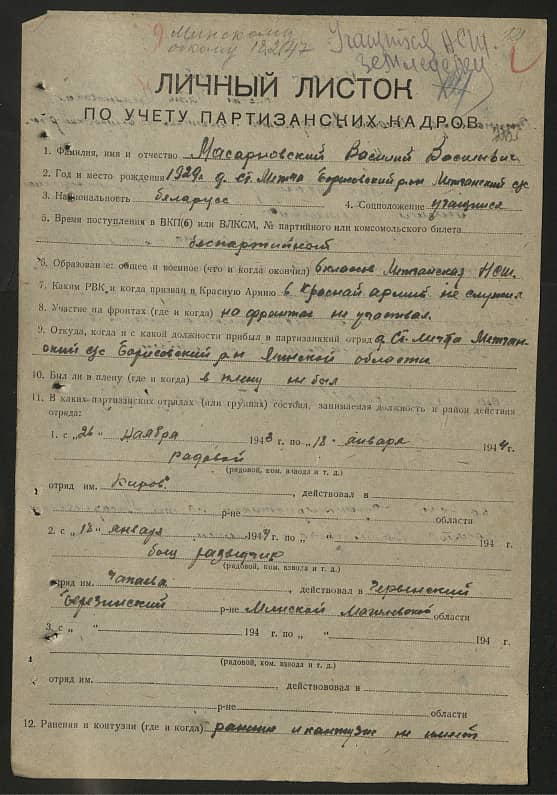 Минскому
обкому 12.2.47
Учащийся НСШ.
ЛИЧНЫЙ ЛИСТОК
ПО УЧЕТУ ПАРТИЗАНСКИХ КАДРОВ
1. Фамилия, имя и отчество Масарновский Василий Васильевич
2. Год и место рождения 1929г. д. Ст. Мётча Борисовский р-н Мётчанский с/с
3. Национальность белорус 4. Соцположение учащийся
5. Время поступления в ВКП(б) или ВЛКСМ, № партийного или комсомольского билета
беспартийный
6. Образование: общее и военное (что и когда окончил) 6 классов НСШ.
7. Каким РВК и когда призван в Красную Армию в Красной армии не служил
8. Участие на фронтах (где и когда) на фронтах не участвовал.
9. Откуда, когда и с какой должности прибыл в партизанский отряд д. Ст. Метча Метчан-
ский с/с Борисовский р-н Минской области
10. Был ли в плену (где и когда) в плену не был
11. В каких партизанских отрядах (или группах) состоял, занимаемая должность и район действия
отряда:
1. с „26" ноября 1943 г. по „18" января 1944 г.
рядовой
(рядовой, ком. взвода и т. д.)
отряд им. Киров , действовал в
р-не области
2. с „18" января 1944 г. по „ " 194 г.
(рядовой, ком. взвода и т. д.)
отряд им. Чапаева , действовал в Червенский
Березинский р-не Минской Могилевской области
3. с „ " 194 г. по „ " 194 г.
(рядовой, ком. взвода и т. д.)
отряд им. , действововал в
р-не области
12. Ранения и контузии (где и когда) ранений и контузий не имеет